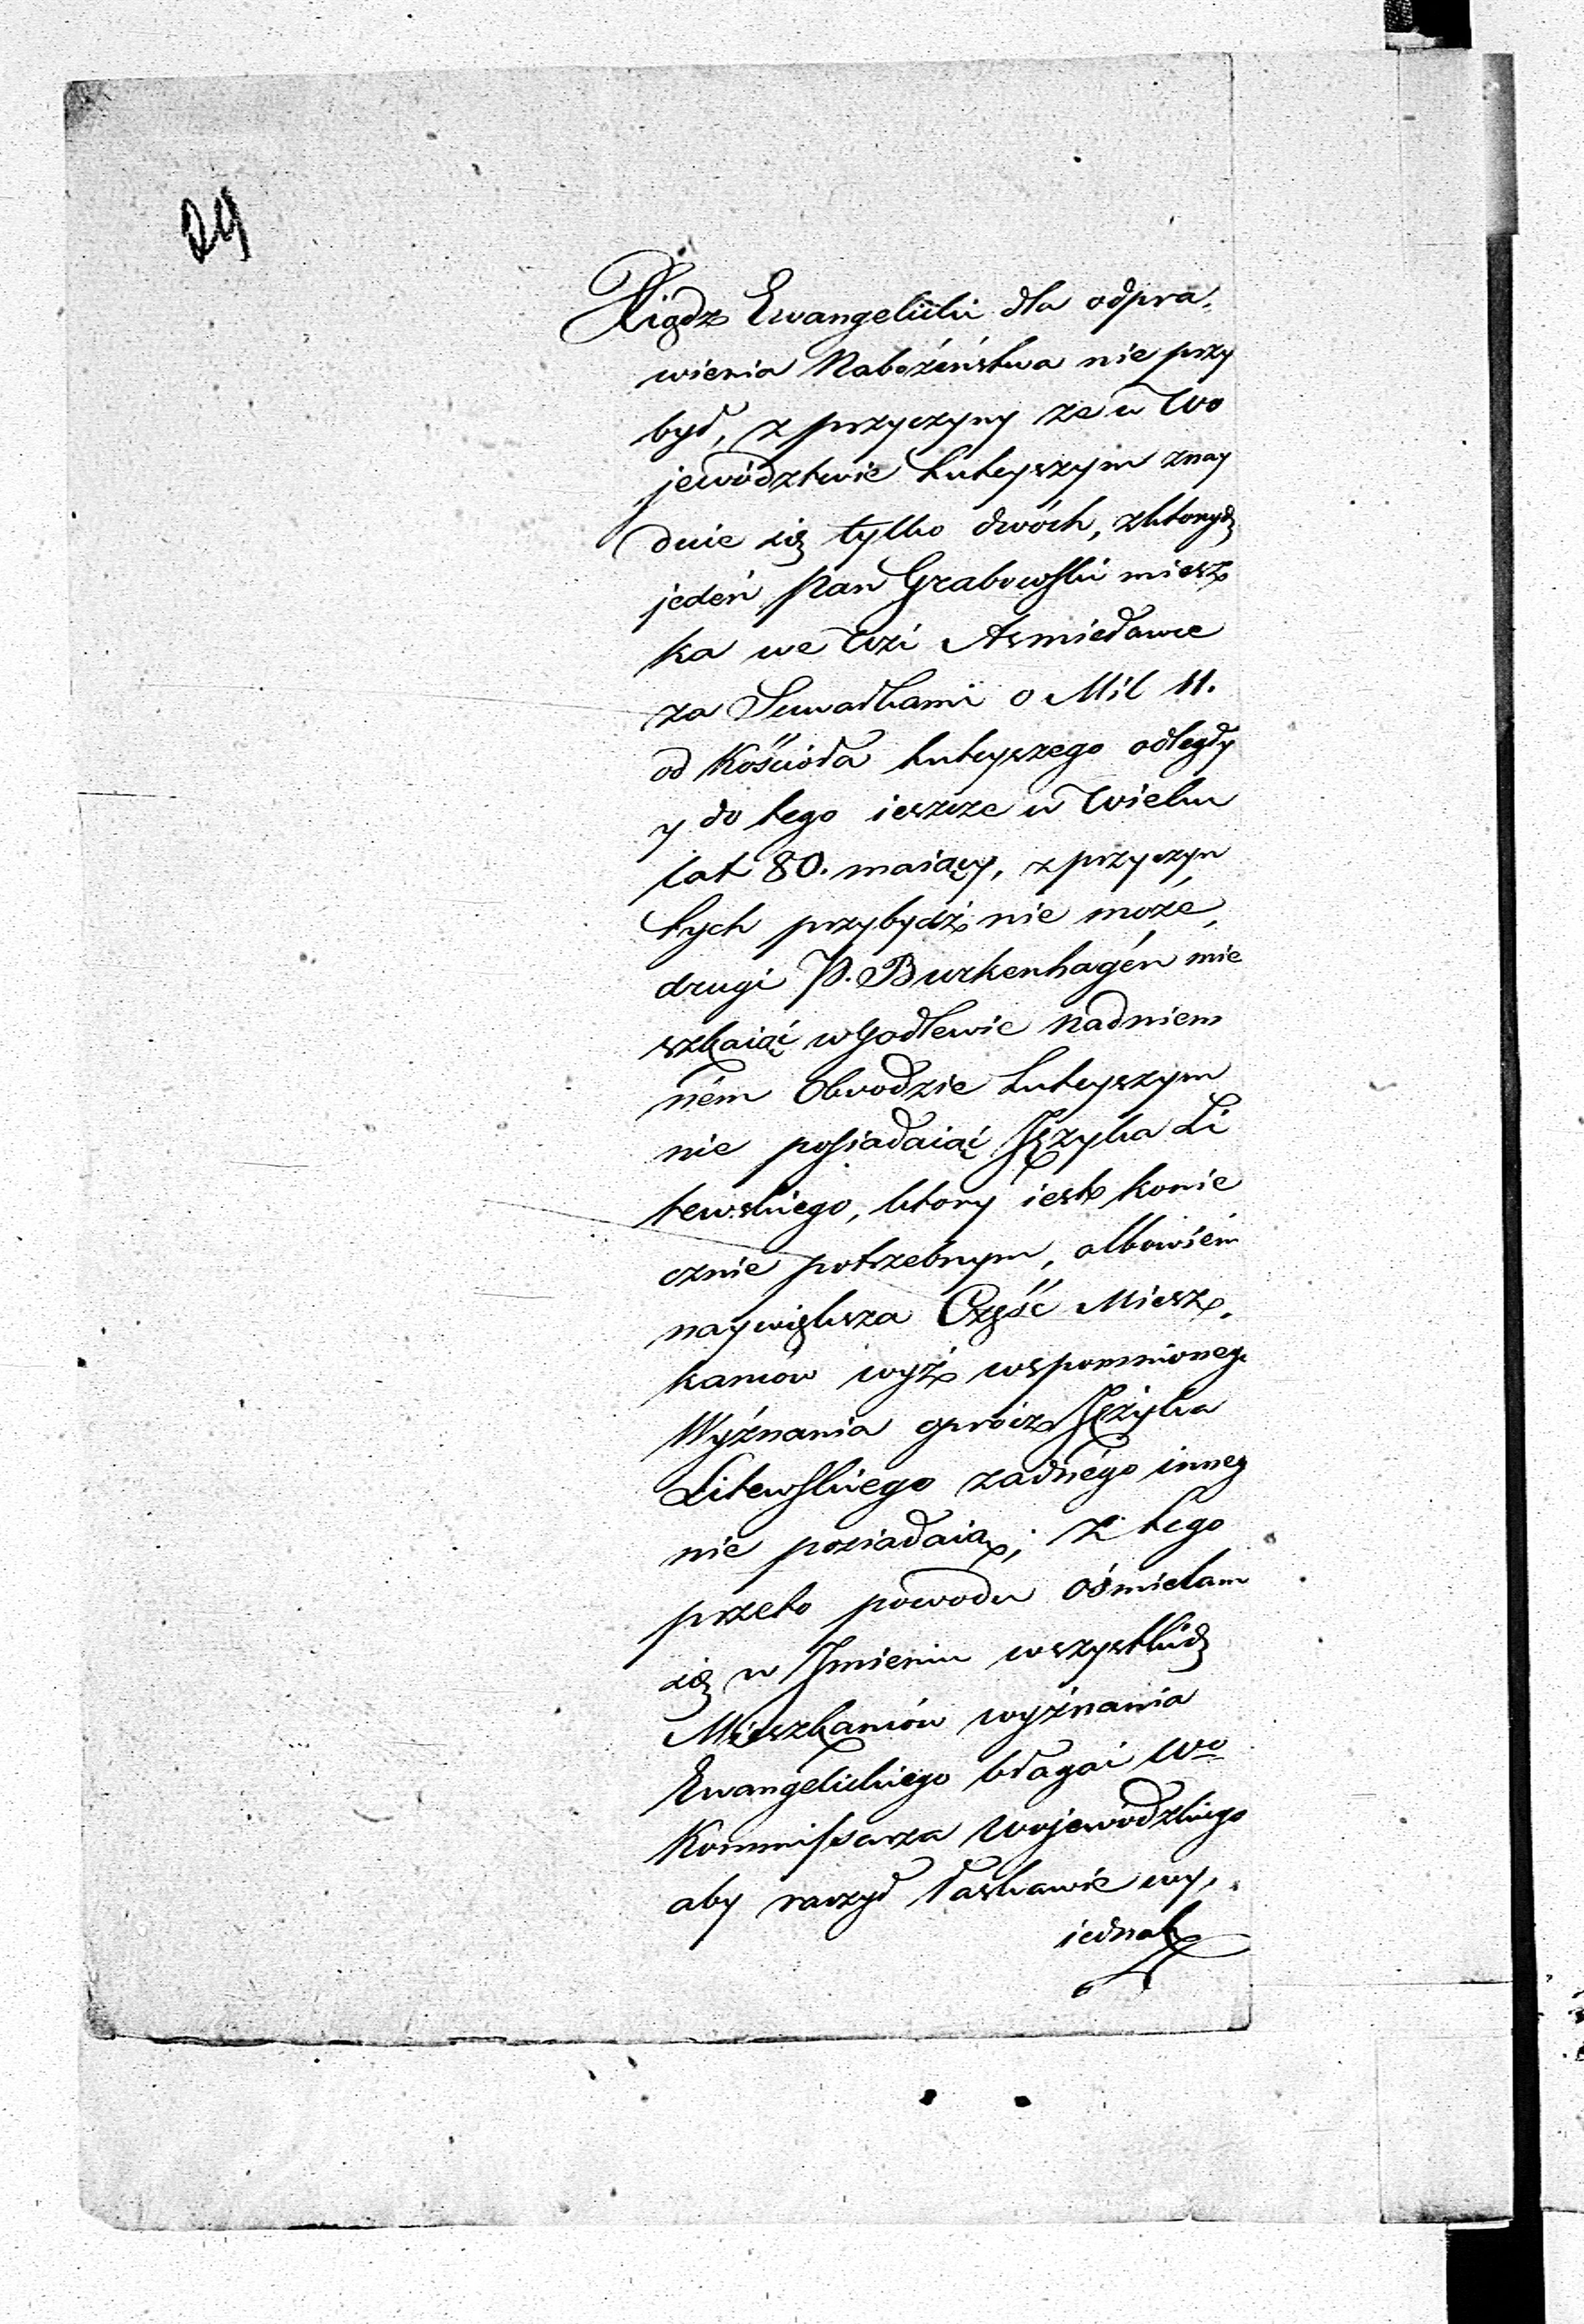 29
Xiądz Ewangelicki dla odpra-
wienia Nabożeństwa nie przy
był, z przyczyny ze w Wo
jewództwie tuteyszym znay
duie się tylko dwóch, z ktorych
jedeń Pan Grabowski miesz
ka we Wsi
za Suwałkami o Mil 11.
od Kościoła tuteyszego odległy
y do tego ieszcze w Wielu
lat 80. maiący, z przyczyn
tych przybydź nie może,
drugi P. Burkenhagén mie
szkaiąć w Godlewie nadniem
ném Obwodzie tuteyszym
nie posiadaiąć Języka Li
tewskiego, ktory iest konie
cznie potrzebnym, albowiém
naywiększa Część Miesz-
kańcow wyż wspomnioneg
Wyżnania oprócz Jężyka
Litewskiego zadnégo inneg
nie posiadaią; z tego
przeto powodu ośmielam
się w Jmieniu wszystkich
Mieszkańców wyżnania
Ewangelickiego błagać Wo
Kommissarza Wojewódzkiego
aby raczył łaskawie wy-
iednak